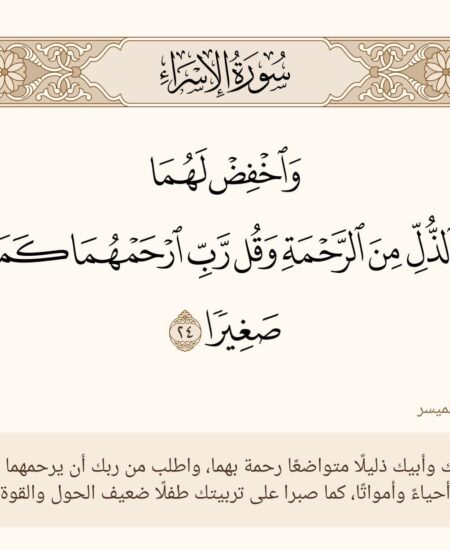 سُورَةُ الإِسْرَاءِ
وَٱخْفِضْ لَهُمَا
ٱلذُّلِّ مِنَ ٱلرَّحْمَةِ وَقُل رَّبِّ ٱرْحَمْهُمَا كَمَا
صَغِيرٗا ٢٤
لميسر
ك وأبيك ذليلًا متواضعًا رحمة بهما، واطلب من ربك أن يرحمهما
أحياءً وأمواتًا، كما صبرا على تربيتك طفلًا ضعيف الحول والقوة